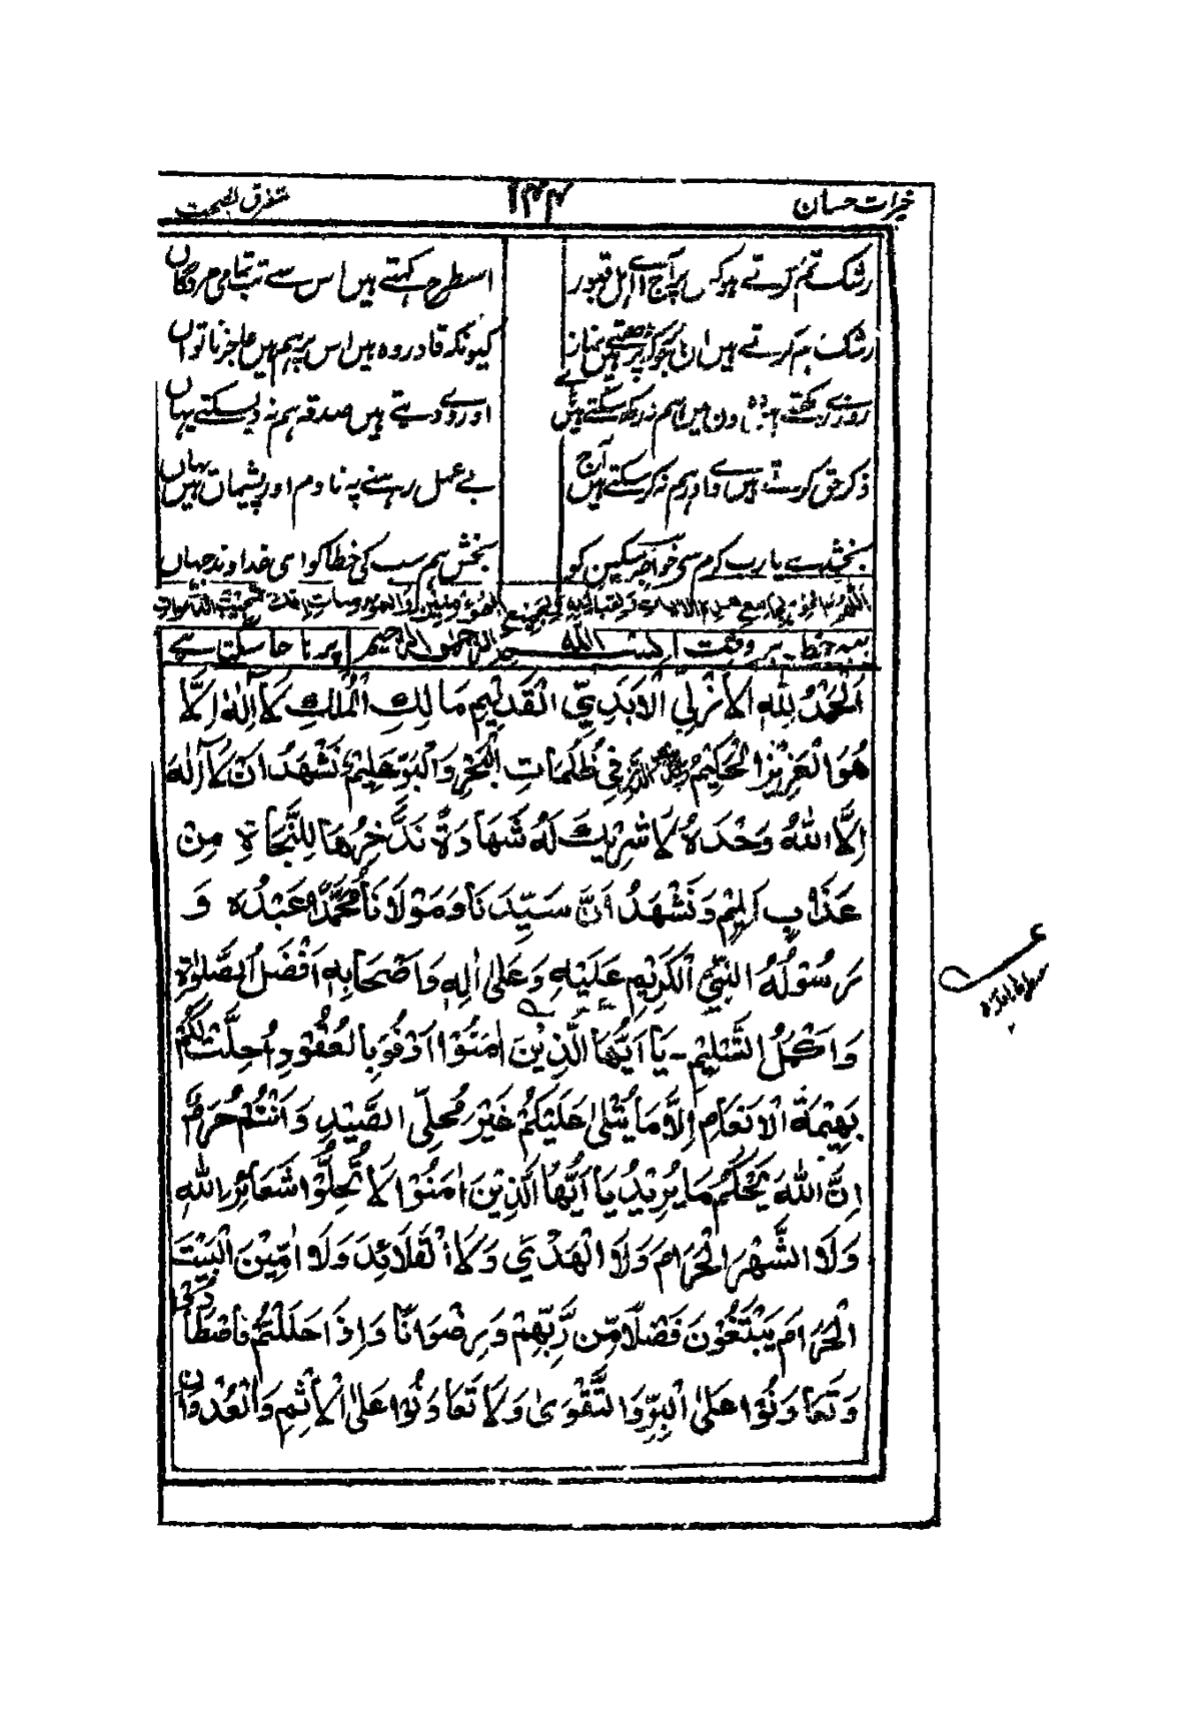 خیرات حسان ۱۴۴ متفرق نصیحت
رشک تم کرتے ہو کس پر آج اے اہل قبور اسطرح کہتے ہیں اس سے تب تمامی مردگاں
رشک ہم کرتے ہیں ان پر جو کہ پڑھتے ہیں نماز کیونکہ قادر وہ ہیں اس پر ہم ہیں عاجز ناتواں
روزے رکھتے ہیں وہ دن میں ہم نہ رکھ سکتے ہیں اور وے دیتے ہیں صدقہ ہم نہ دیسکتے یہاں
ذکر حق کرتے ہیں وے قادر ہم نہ کر سکتے ہیں آج بے عمل رہنے پہ نادم اور پشیماں ہیں یہاں
بخشدے یا رب کرم سے خواجہ مسکین کو بخش ہم سب کی خطا کو اے خداوند جہاں
یہہ خطبہ ہر وقت بسم الله الرحمن الرحيم پڑھا جا سکتا ہے
اَلْحَمْدُ لِلّٰهِ الْاَزَلِيِّ الْاَبَدِيِّ الْقَدِيْمِ مَالِكِ الْمُلْكِ لَآ اِلٰهَ اِلَّا
هُوَ الْعَزِيْزُ الْحَكِيْمُ فِيْ ظُلُمَاتِ الْبَحْرِ وَالْبَرِّ عَلِيْمٌ نَشْهَدُ اَنْ لَآ اِلٰهَ
اِلَّا اللّٰهُ وَحْدَهٗ لَا شَرِيْكَ لَهٗ شَهَادَةً نَدَّخِرُهَا لِلنَّجَاةِ مِنْ
عَذَابٍ اَلِيْمٍ وَنَشْهَدُ اَنَّ سَيِّدَنَا وَمَوْلَانَا مُحَمَّدًا عَبْدُهٗ وَ
رَسُوْلُهُ النَّبِيُّ الْكَرِيْمِ عَلَيْهِ وَعَلٰى اٰلِهٖ وَاَصْحَابِهٖ اَفْضَلُ الصَّلٰوةِ
وَاَكْمَلُ التَّسْلِيْمِ - يَا اَيُّهَا الَّذِيْنَ اٰمَنُوْا اَوْفُوْا بِالْعُقُوْدِ اُحِلَّتْ لَكُمْ
بَهِيْمَةُ الْاَنْعَامِ اِلَّا مَا يُتْلٰى عَلَيْكُمْ غَيْرَ مُحِلِّى الصَّيْدِ وَاَنْتُمْ حُرُمٌ
اِنَّ اللّٰهَ يَحْكُمُ مَا يُرِيْدُ يَا اَيُّهَا الَّذِيْنَ اٰمَنُوْا لَا تُحِلُّوْا شَعَائِرَ اللّٰهِ
وَلَا الشَّهْرَ الْحَرَامَ وَلَا الْهَدْيَ وَلَا الْقَلَائِدَ وَلَا اٰمِّيْنَ الْبَيْتَ
الْحَرَامَ يَبْتَغُوْنَ فَضْلًا مِّنْ رَّبِّهِمْ وَرِضْوَانًا وَاِذَا حَلَلْتُمْ فَاصْطَادُوْا
وَتَعَاوَنُوْا عَلَى الْبِرِّ وَالتَّقْوٰى وَلَا تَعَاوَنُوْا عَلَى الْاِثْمِ وَالْعُدْوَانِ